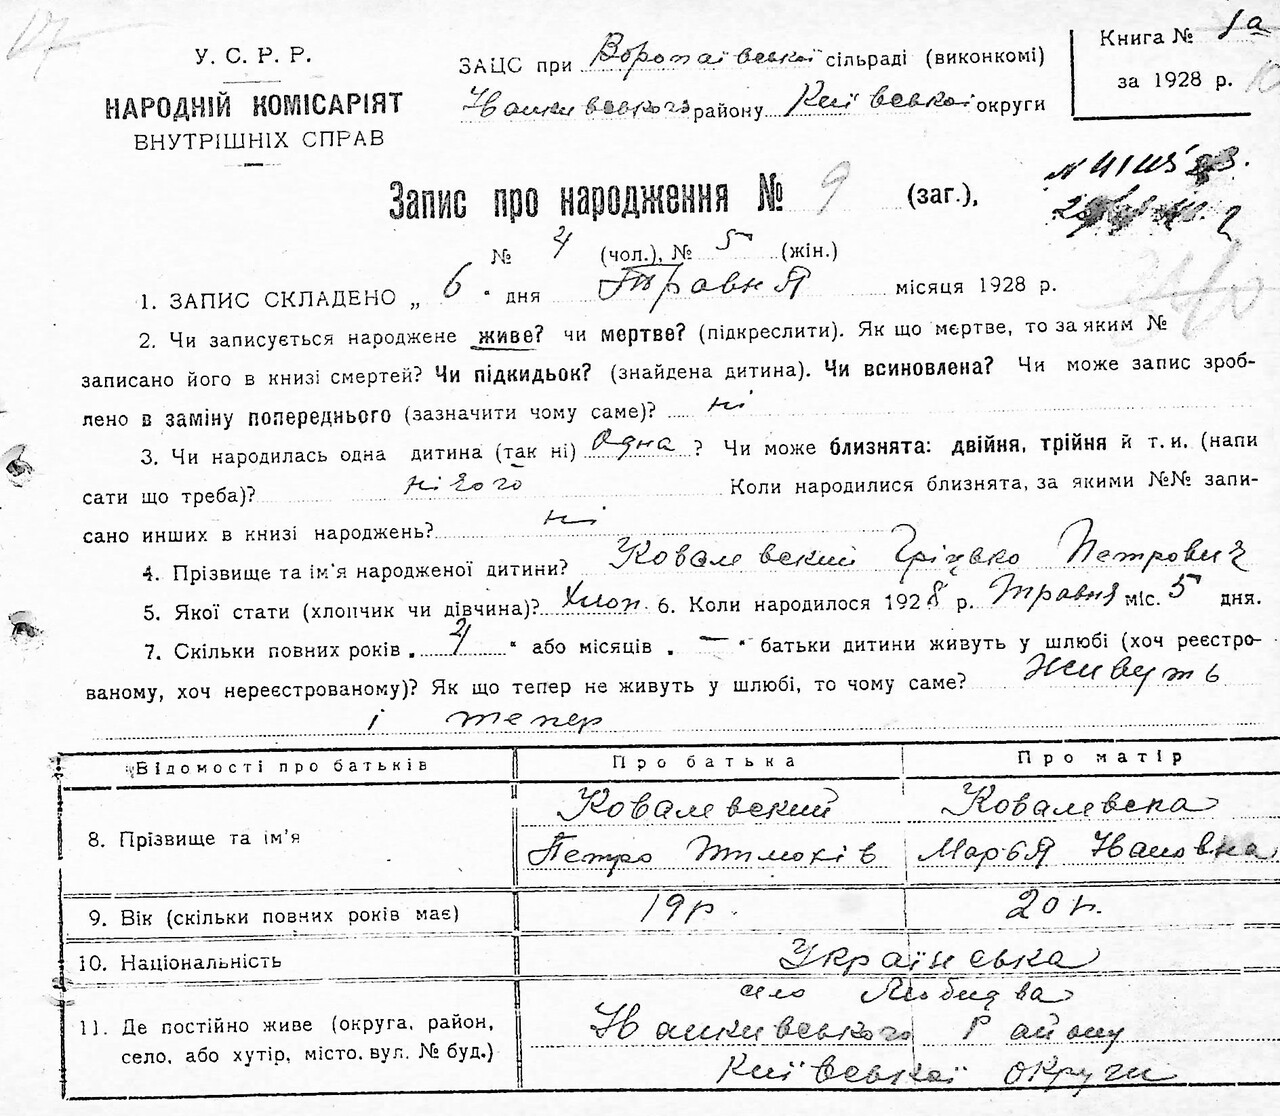 У. С. Р. Р.
НАРОДНІЙ КОМІСАРІЯТ
ВНУТРІШНІХ СПРАВ
ЗАЦС при Воропаївської сільраді (виконкомі)
району Київської округи
Книга № 1а
за 1928 р.
Запис про народження № 9 (заг.),
№ 4 (чол.), № 5 (жін.)
1. ЗАПИС СКЛАДЕНО „ 6 " дня Травня місяця 1928 р.
2. Чи записується народжене живе? чи мертве? (підкреслити). Як що мєртве, то за яким №
записано його в книзі смертей? Чи підкидьок? (знайдена дитина). Чи всиновлена? Чи може запис зроб-
лено в заміну попереднього (зазначити чому саме)? ні
3. Чи народилась одна дитина (так ні) Одна ? Чи може близнята: двійня, трійня й т. и. (напи
сати що треба)? Коли народилися близнята, за якими №№ запи-
сано инших в книзі народжень? ні
4. Прізвище та ім'я народженої дитини? Ковалевский Грицько Петрович
5. Якої стати (хлопчик чи дівчина)? Хлоп 6. Коли народилося 1928 р. Травня міс. 5 дня.
7. Скільки повних років „ " або місяців „ — " батьки дитини живуть у шлюбі (хоч реєстро-
ваному, хоч нереєстрованому)? Як що тепер не живуть у шлюбі, то чому саме? Живуть
і тепер
Відомості про батьків Про батька Про матір
8. Прізвище та ім'я
Ковалевский Ковалевска
Петро Марья Івановна
9. Вік (скільки повних років має) 19р. 20 р.
10. Національність Українська
11. Де постійно живе (округа, район,
село, або хутір, місто, вул. № буд.)
село
Району
Київської округи